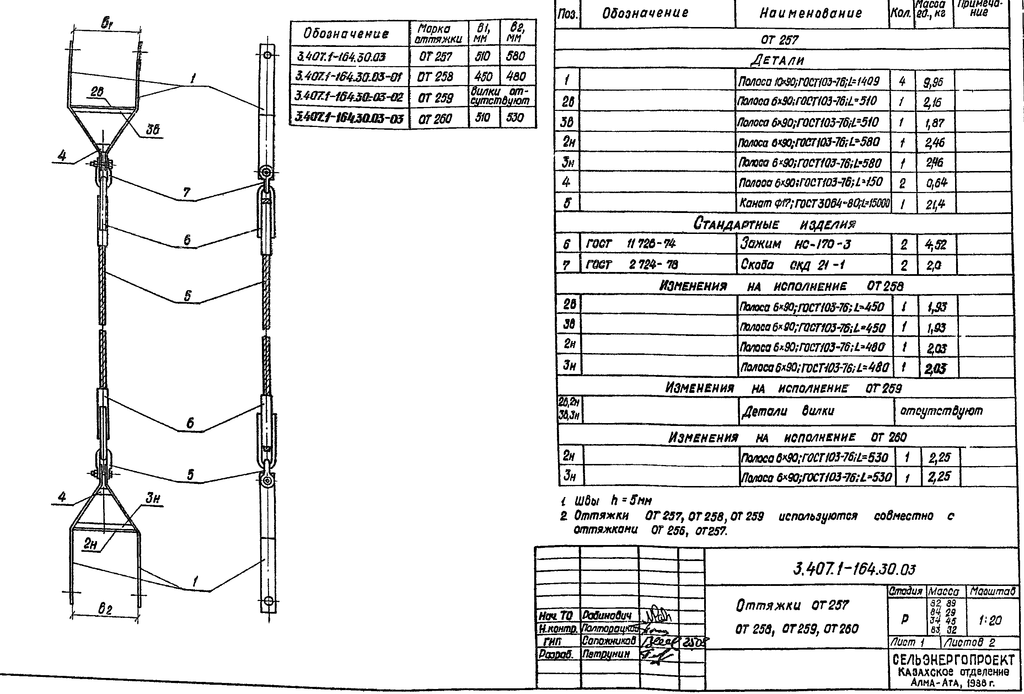 в1
1
2в
3в
4
7
6
5
6
5
4
3н
2н
1
в2
Обозначение Марка оттяжки в1, мм в2, мм
3.407.1-164.30.03 ОТ 257 510 580
3.407.1-164.30.03-01 ОТ 258 450 480
3.407.1-164.30.03-02 ОТ 259 вилки отсутствуют
3.407.1-164.30.03-03 ОТ 260 510 530
Поз. Обозначение Наименование Кол. Масса ед., кг Примечание
ОТ 257
Детали
1 Полоса 10×90; ГОСТ103-76; L=1409 4 9,96
2в Полоса 6×90; ГОСТ103-76; L=510 1 2,16
3в Полоса 6×90; ГОСТ103-76; L=510 1 1,87
2н Полоса 6×90; ГОСТ103-76; L=580 1 2,46
3н Полоса 6×90; ГОСТ103-76; L=580 1 2,46
4 Полоса 6×90; ГОСТ103-76; L=150 2 0,64
5 Канат ф17; ГОСТ 3064-80; L=15000 1 21,4
Стандартные изделия
6 ГОСТ 11726-74 Зажим НС-170-3 2 4,52
7 ГОСТ 2724-78 Скоба СКД 21-1 2 2,0
Изменения на исполнение ОТ 258
2в Полоса 6×90; ГОСТ103-76; L=450 1 1,93
3в Полоса 6×90; ГОСТ103-76; L=450 1 1,93
2н Полоса 6×90; ГОСТ103-76; L=480 1 2,03
3н Полоса 6×90; ГОСТ103-76; L=480 1 2,03
Изменения на исполнение ОТ 259
2в,2н 3в,3н Детали вилки отсутствуют
Изменения на исполнение ОТ 260
2н Полоса 6×90; ГОСТ103-76; L=530 1 2,25
3н Полоса 6×90; ГОСТ103-76; L=530 1 2,25
1 Швы h = 5мм
2 Оттяжки ОТ 257, ОТ 258, ОТ 259 используются совместно с
оттяжками ОТ 256, ОТ257.
3.407.1-164.30.03
Оттяжки ОТ 257
ОТ 258, ОТ259, ОТ 260
Стадия Масса Масштаб
Р 82,89 84,29 34,45 83,32 1:20
Лист 1 Листов 2
Нач. ТО Рабинович
Н.контр. Полторацков
ГИП Сапожников
Разраб. Петрунин
СЕЛЬЭНЕРГОПРОЕКТ
Казахское отделение
Алма-Ата, 1988 г.